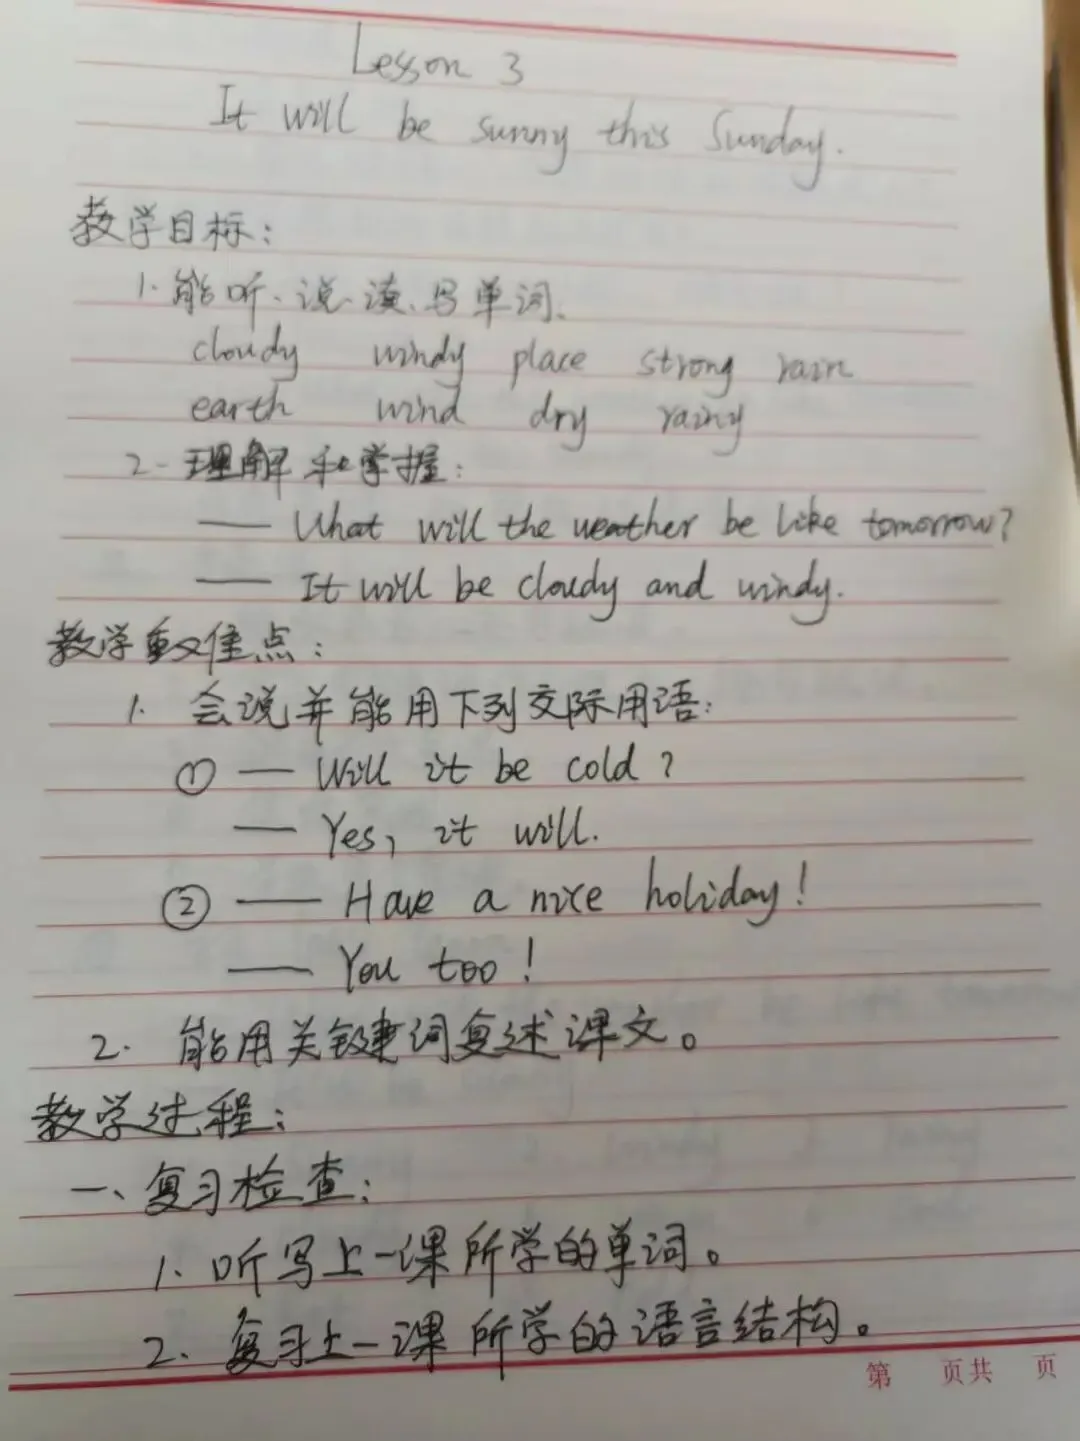 Lesson 3
It will be sunny this Sunday.
教学目标:
1. 能听、说、读、写单词、
cloudy windy place strong rain
earth wind dry rainy
2. 理解和掌握:
—— What will the weather be like tomorrow?
—— It will be cloudy and windy.
教学重难点:
1. 会说并能用下列交际用语:
① — Will it be cold?
— Yes, it will.
② —— Have a nice holiday!
—— You too!
2. 能用关键词复述课文。
教学过程:
一、复习检查:
1、听写上一课所学的单词。
2、复习上一课所学的语言结构。
第 页共 页